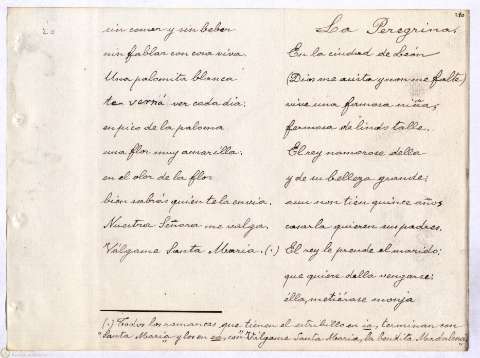 sin comer y sin beber
sin fablar con cosa viva.
Una palomita blanca
te verná ver cada dia;
en pico de la paloma
una flor muy amarilla;
en el olor de la flor
bien sabrás quién te la envia.
Nuestra Señora me valga.
Válgame Santa Maria. (.)
(.) Todos los romances que tienen el estribillo en ia, terminan con
"Santa Maria" y los en ea, con "Válgame Santa Maria, la bendita Madalena
La Peregrina.
En la ciudad de León
(Dios me asista y non me falte)
vive una fermosa niña,
fermosa de lindo talle.
El rey namorose della
y de su belleza grande;
aun non tién quince años
casarla quieren sus padres.
El rey le prende el marido;
que quiere della vengarse;
ella, metiérase monja